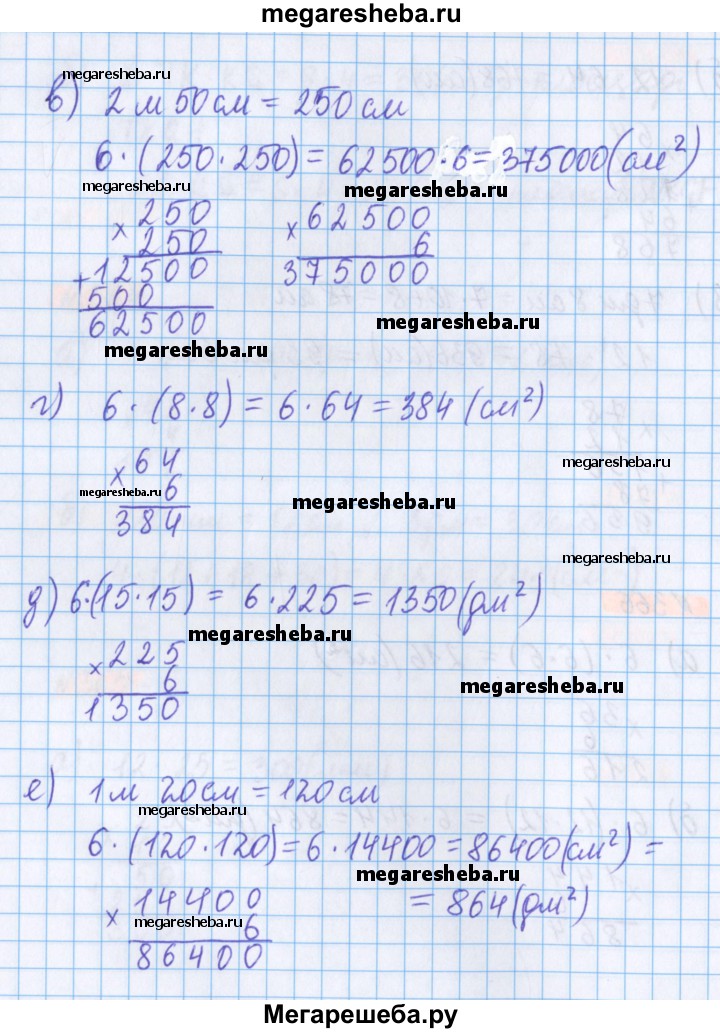 megaresheba.ru
megaresheba.ru
в) 2 м 50 см = 250 см
6·(250·250)=62500·6=375000(см²)
megaresheba.ru
megaresheba.ru
× 250
250
+12500
500
62500
× 62500
6
375000
megaresheba.ru
megaresheba.ru
г) 6·(8·8)=6·64=384(см²)
× 64
6
384
megaresheba.ru
megaresheba.ru
megaresheba.ru
megaresheba.ru
д) 6·(15·15)=6·225=1350(дм²)
megaresheba.ru
× 225
6
1350
megaresheba.ru
е) 1м 20см=120см
megaresheba.ru
6·(120·120)=6·14400=86400(см²)=
megaresheba.ru
=864(дм²)
× 14400
megaresheba.ru
6
86400
Мегарешеба.ру